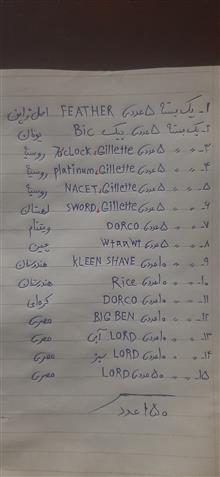 ۱- یک بسته ۵ عددی FEATHER اصل ژاپن
۲- یک بسته ۵ عددی بیک Bic یونان
۳- " " ۵ عددی 7o'cLock,Gillette روسیه
۴- " " ۵ عددی platinum,Gillette روسیه
۵- " " ۵ عددی NACET,Gillette روسیه
۶- " " ۵ عددی SWORD,Gillette لهستان
۷- " " ۵ عددی DORCO ویتنام
۸- " " ۵ عددی چین
۹- " " ۱۰ عددی KLEEN SHAVE هندوستان
۱۰- " " ۱۰ عددی Rice هندوستان
۱۱- " " ۱۰ عددی DORCO کره‌ای
۱۲- " " ۱۰ عددی BIG BEN مصری
۱۳- " " ۱۰ عددی LORD آبی مصری
۱۴- " " ۱۰ عددی LORD سبز مصری
۱۵- " " ۵۰ عددی LORD مصری
۱۵۰ عدد